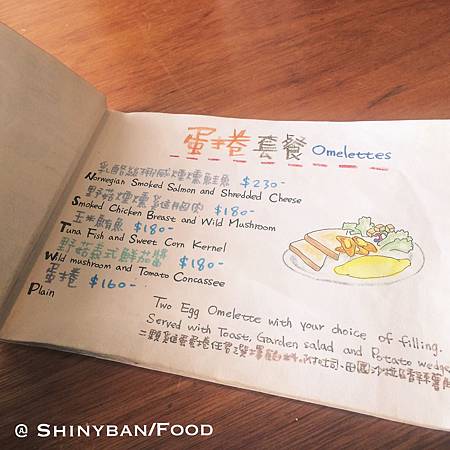 蛋捲套餐 Omelettes
乳酪絲挪威煙燻鮭魚 $230-
Norwegian Smoked Salmon and Shredded Cheese
野菇煙燻雞胸肉 $180-
Smoked Chicken Breast and Wild Mushroom
玉米鮪魚 $180-
Tuna Fish and Sweet Corn Kernel
野菇義式鮮茄醬 $180-
Wild mushroom and Tomato Concassee
蛋捲 $160-
Plain
Two Egg Omelette with your choice of filling.
Served with Toast, Garden salad and Potato wedge
二顆雞蛋蛋捲任君選擇
@ SHINYBAN/FOOD